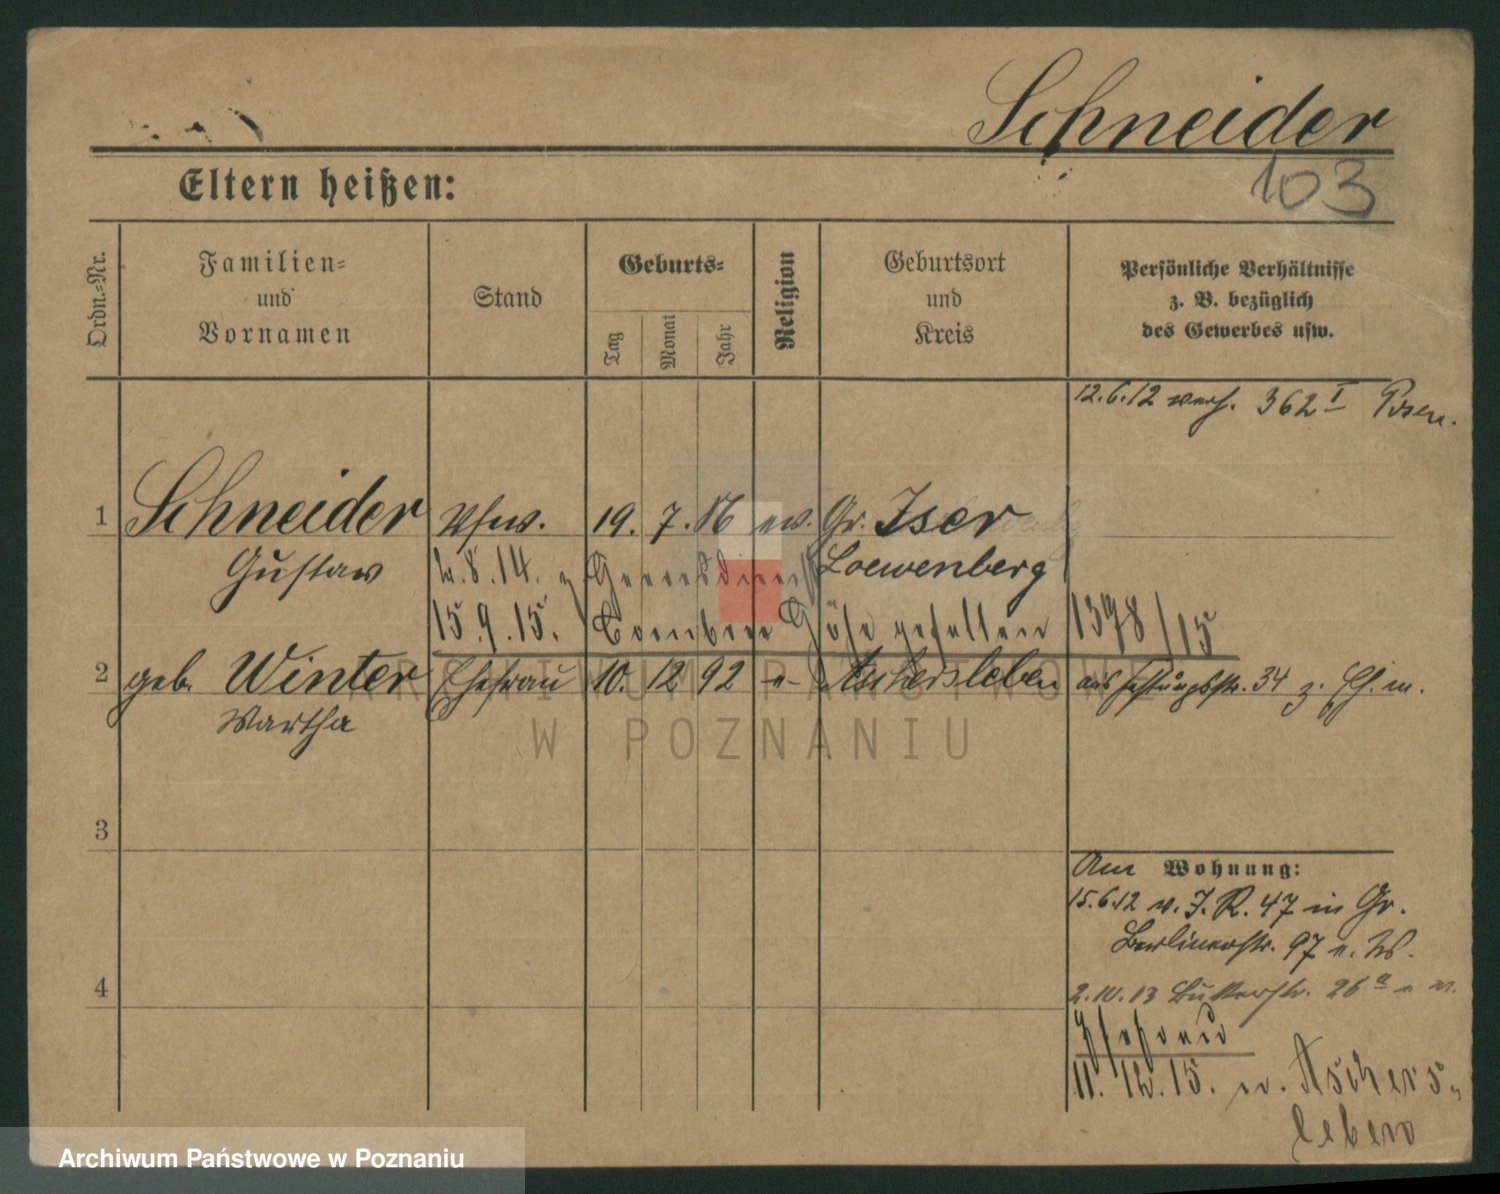 Schneider
103
Eltern heißen:
Ordn.-Nr.
Familien-
und
Vornamen
Stand
Geburts-
Tag
Monat
Jahr
Religion
Geburtsort
und
Kreis
Persönliche Verhältnisse
z. B. bezüglich
des Gewerbes usw.
12.6.12 verh. 362 I Posen.
1 Schneider 19. 7. 86 ev. Gr. Iser
Gustav 2.8.14. z. Heeresdienst Loewenberg
15.9.15. gefallen 1378/15
2 geb. Winter Ehefrau 10. 12 92 e- Aschersleben aus Festungsstr. 34 z. Ehem.
Martha
3
4
Am Wohnung:
15.6.12 v. I. R. 47 in Gr.
Berlinerstr. 97 n. W.
2.10.13 Bukerstr. 26a n. W.
Ehefrau
11. 12. 15. n. Aschers-
leben
ARCHIWUM PAŃSTWOWE
W POZNANIU
Archiwum Państwowe w Poznaniu